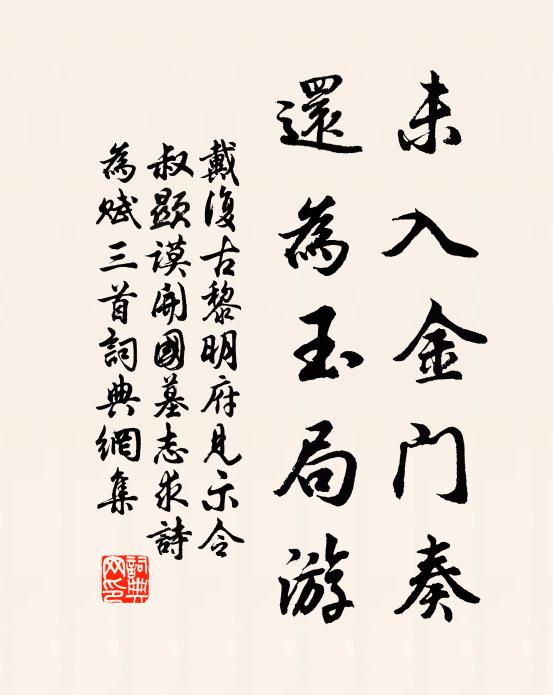 未入金门奏
還為玉局游
戴復古黎明府見示令
叔顯謨開國墓志求詩
為賦三首詞典網集
詞典网印